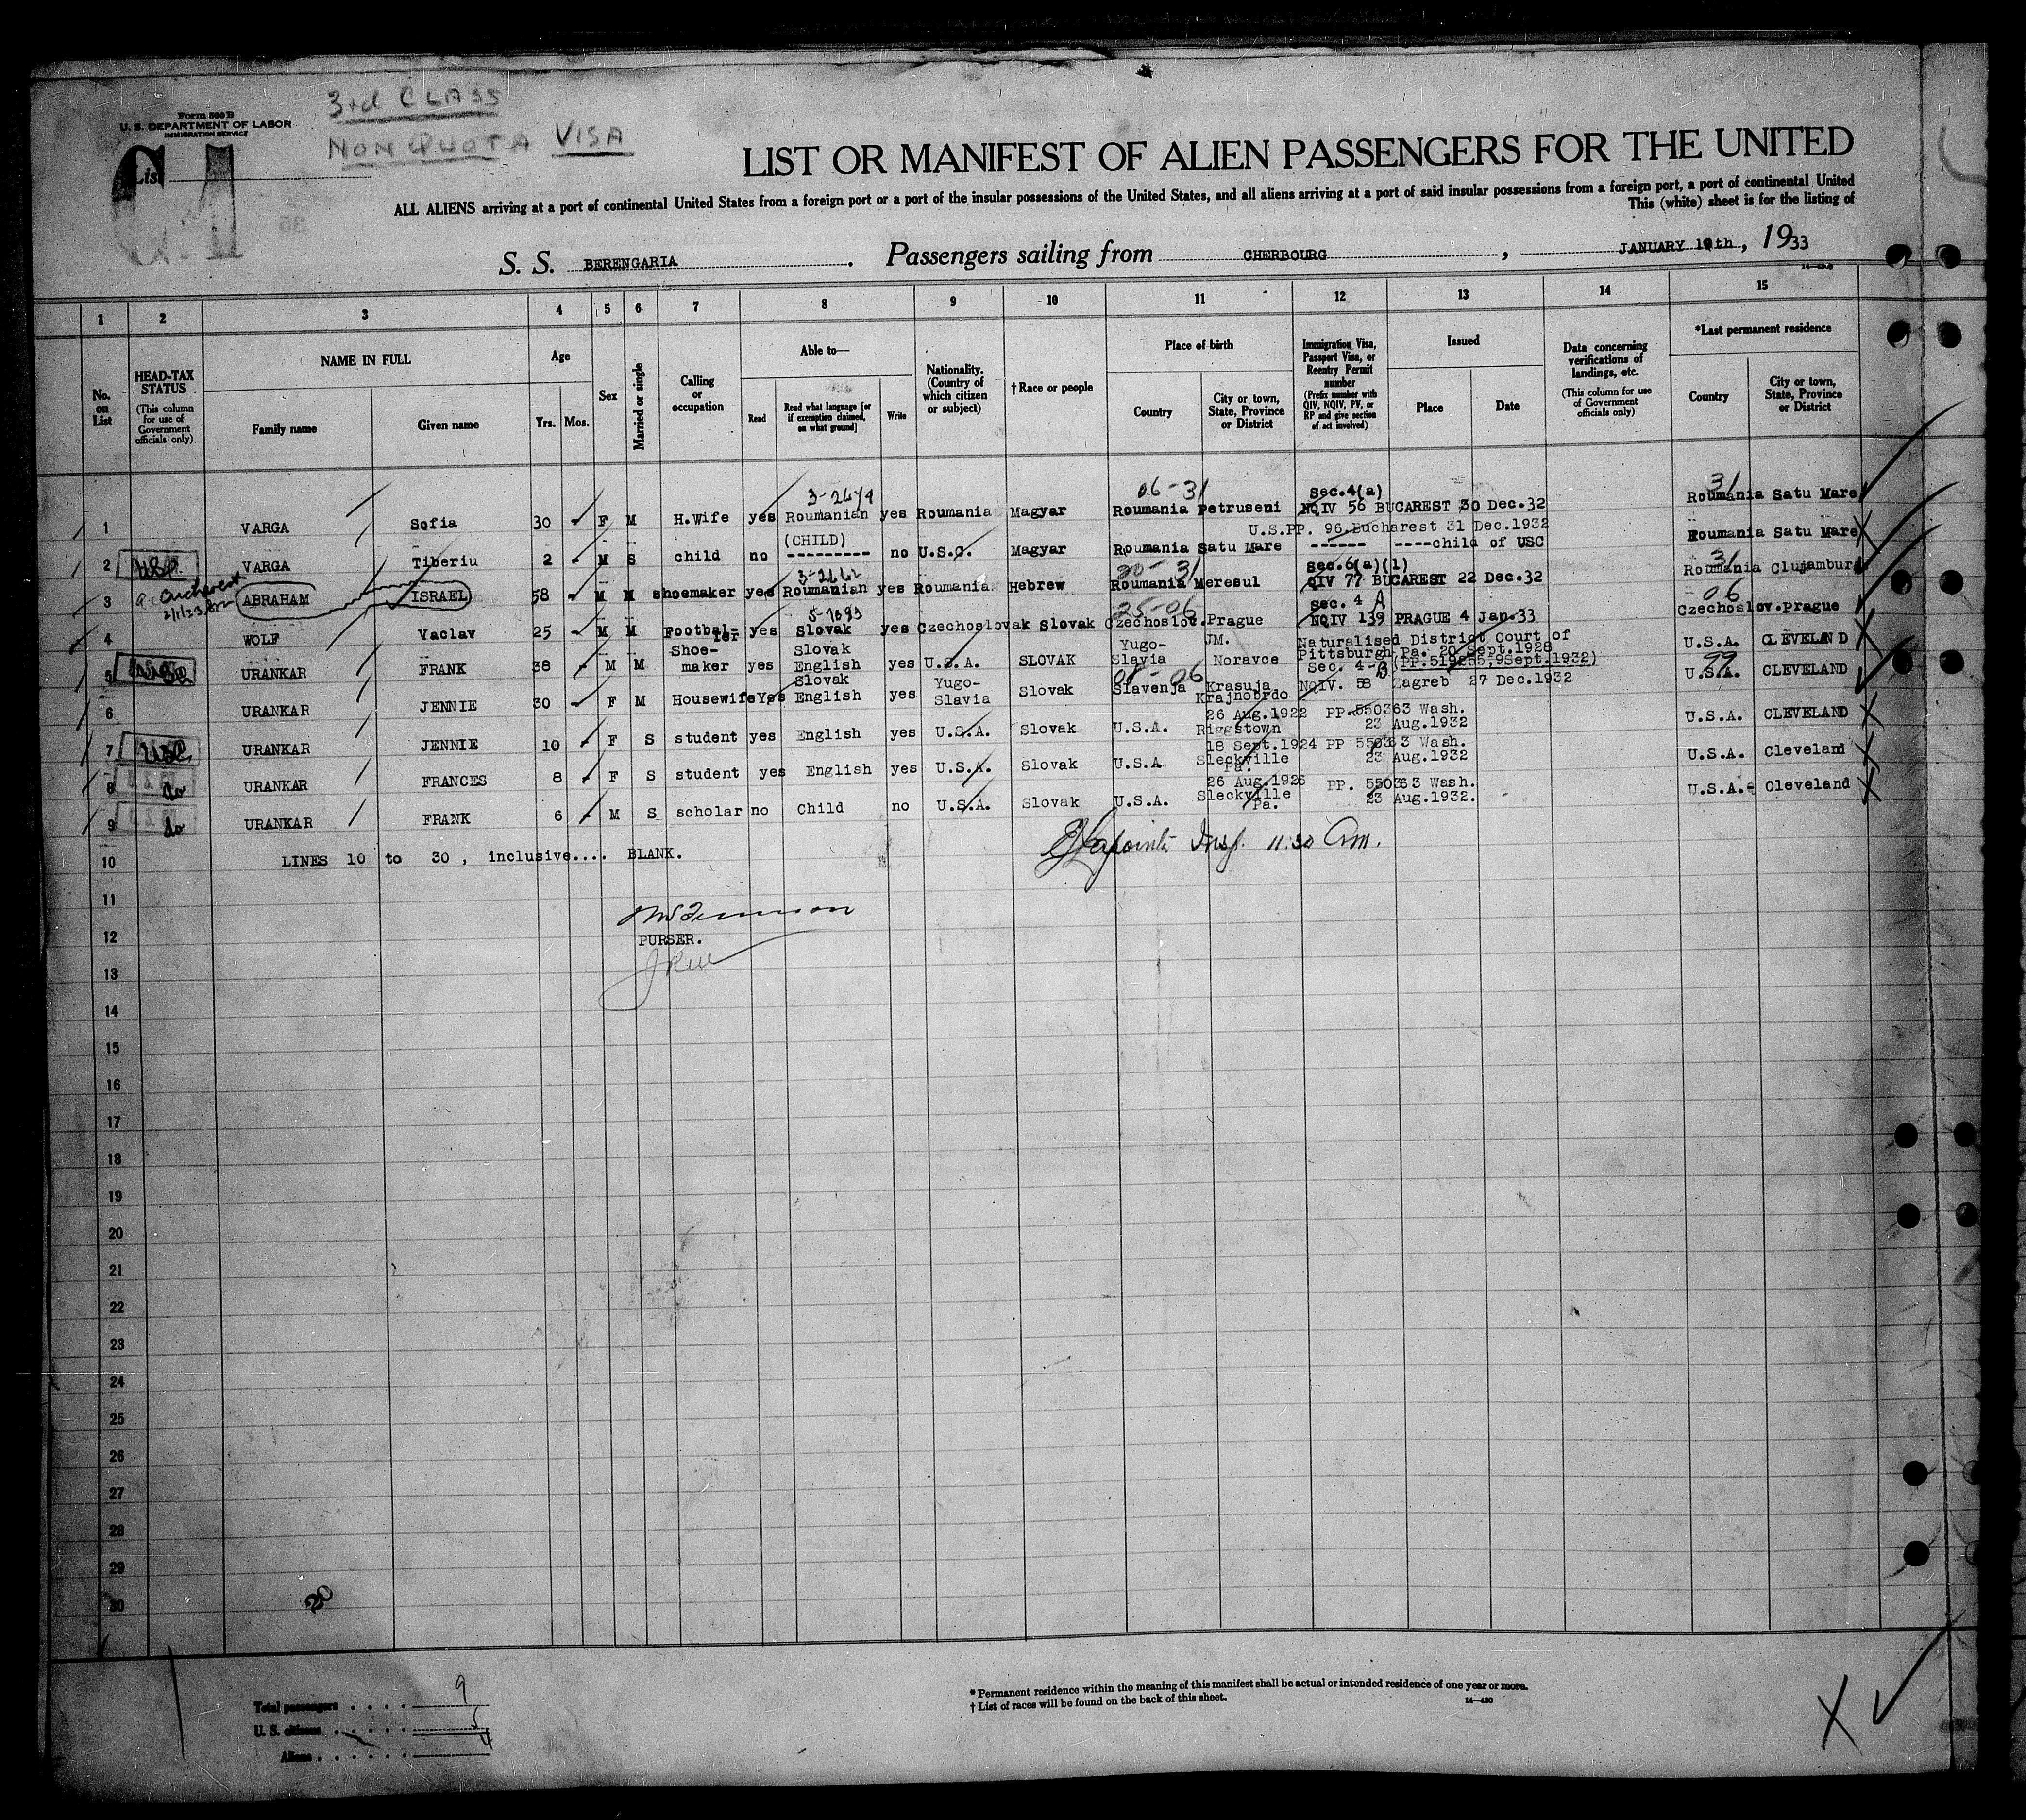 Form 500 B
U. S. DEPARTMENT OF LABOR
IMMIGRATION SERVICE
3rd CLASS
NON QUOTA VISA
List
LIST OR MANIFEST OF ALIEN PASSENGERS FOR THE UNITED
ALL ALIENS arriving at a port of continental United States from a foreign port or a port of the insular possessions of the United States, and all aliens arriving at a port of said insular possessions from a foreign port, a port of continental United
This (white) sheet is for the listing of
S. S. BERENGARIA. Passengers sailing from CHERBOURG, JANUARY 19th, 1933
1 2 3 4 5 6 7 8 9 10 11 12 13 14 15
No. on List
HEAD-TAX STATUS
(This column for use of Government officials only)
NAME IN FULL
Family name Given name
Age
Yrs. Mos.
Sex
Married or single
Calling or occupation
Able to—
Read
Read what language [or if exemption claimed, on what ground]
Write
Nationality. (Country of which citizen or subject)
†Race or people
Place of birth
Country
City or town, State, Province or District
Immigration Visa, Passport Visa, or Reentry Permit number
(Prefix number with QIV, NQIV, PV, or RP and give section of act involved)
Issued
Place Date
Data concerning verifications of landings, etc.
(This column for use of Government officials only)
*Last permanent residence
Country
City or town, State, Province or District
3-2474 06-31 Sec.4(a) 31
1 VARGA Sofia 30 - F M H.Wife yes Roumanian yes Roumania Magyar Roumania Petruseni NQIV 56 BUCAREST 30 Dec.32 Roumania Satu Mare
(CHILD) U.S.PP. 96.Bucharest 31 Dec.1932
2 VARGA Tiberiu 2 - M S child no --------- no U.S.C. Magyar Roumania Satu Mare ------ ----child of USC Roumania Satu Mare
20-31 Sec.6(a)(1) 31
3 ABRAHAM ISRAEL 58 - M M shoemaker yes Roumanian yes Roumania Hebrew Roumania Meresul QIV 77 BUCAREST 22 Dec.32 Roumania Clujamburg
25-06 Sec. 4 A 06
4 WOLF Vaclav 25 - M M Footbal-ler yes Slovak yes Czechoslovak Slovak Czechoslov. Prague NQIV 139 PRAGUE 4 Jan.33 Czechoslov.Prague
Shoe- Slovak Yugo- JM. Naturalised District Court of
Pittsburgh Pa. 20 Sept.1928
5 URANKAR FRANK 38 - M M maker yes English yes U.S.A. SLOVAK Slavia Noravce (PP.519255,9Sept.1932) U.S.A. CLEVELAND
Slovak Yugo- 08-06 Sec. 4-B 99
6 URANKAR JENNIE 30 - F M Housewife Yes English yes Slavia Slovak Slavenja Krasuja Krajnobrdo NQIV. 58 Zagreb 27 Dec.1932 U.S.A. CLEVELAND
26 Aug.1922 PP.550363 Wash.
7 URANKAR JENNIE 10 - F S student yes English yes U.S.A. Slovak U.S.A. Riggstown 23 Aug.1932 U.S.A. CLEVELAND
18 Sept.1924 PP 550363 Wash.
8 URANKAR FRANCES 8 - F S student yes English yes U.S.A. Slovak U.S.A Sleckville Pa. 23 Aug.1932 U.S.A. Cleveland
26 Aug.1926 PP. 550363 Wash.
9 URANKAR FRANK 6 - M S scholar no Child no U.S.A. Slovak U.S.A. Sleckville Pa. 23 Aug.1932. U.S.A. Cleveland
10 LINES 10 to 30, inclusive.... BLANK.
Lapointe Insp. 11:30 Am.
11
12 PURSER.
13
14
15
16
17
18
19
20
21
22
23
24
25
26
27
28
29
30
Total passengers . . . . 9
U. S. citizens . . . . . 5
Aliens . . . . . . 4
* Permanent residence within the meaning of this manifest shall be actual or intended residence of one year or more.
† List of races will be found on the back of this sheet.
14—430